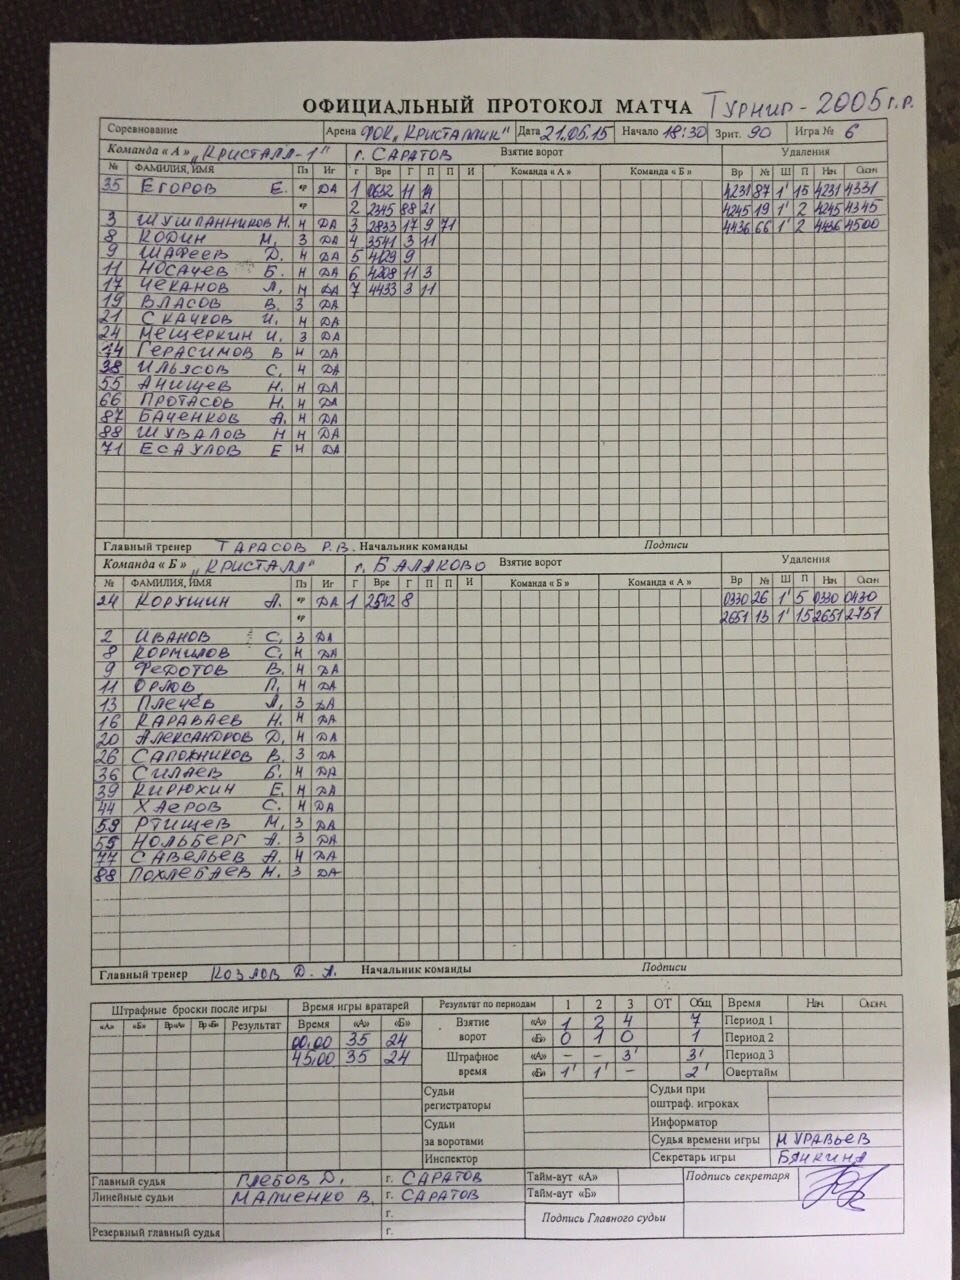 ОФИЦИАЛЬНЫЙ ПРОТОКОЛ МАТЧА ТУРНИР - 2005 г.р.
Соревнование Арена ФОК „КРИСТАЛЛИК" Дата 21.06.15 Начало 18:30 Зрит. 90 Игра № 6
Команда «А» „КРИСТАЛЛ-1" г. САРАТОВ Взятие ворот Удаления
№ ФАМИЛИЯ, ИМЯ Пз Иг Г Вре Г П П И Команда «А» Команда «Б» Вр № Ш П Нач Оконч
35 ЕГОРОВ Е. вр ДА 1 0632 11 14 4231 87 1' 15 4231 4331
вр 2 2345 88 21 4245 19 1' 2 4245 4345
3 ШУШПАННИКОВ Н. Н ДА 3 2833 17 9 71 4436 66 1' 2 4436 4500
8 КОДИН М. З ДА 4 3541 3 11
9 ШАФЕЕВ Д. Н ДА 5 4129 9
11 НОСАЧЕВ Б. Н ДА 6 4208 11 3
17 ЧЕКАНОВ Л. Н ДА 7 4433 3 11
19 ВЛАСОВ В. З ДА
21 СКАЧКОВ И. Н ДА
24 МЕЩЕРКИН И. З ДА
14 ГЕРАСИМОВ В Н ДА
38 ИЛЬЯСОВ С. Н ДА
55 АНИЩЕВ Н. Н ДА
66 ПРОТАСОВ Н. Н ДА
87 БАЧЕНКОВ А. Н ДА
88 ШУВАЛОВ Н Н ДА
71 ЕСАУЛОВ Е Н ДА
Главный тренер ТАРАСОВ Р.В. Начальник команды Подписи
Команда «Б» „КРИСТАЛЛ" г. БАЛАКОВО Взятие ворот Удаления
№ ФАМИЛИЯ, ИМЯ Пз Иг Г Вре Г П П И Команда «Б» Команда «А» Вр № Ш П Нач Оконч
24 КОРУШИН А. вр ДА 1 2542 8 0330 26 1' 5 0330 0430
вр 2651 13 1' 15 2651 2751
2 ИВАНОВ С. З ДА
8 КОРМИЛОВ С. Н ДА
9 ФЕДОТОВ В. Н ДА
11 ОРЛОВ П. Н ДА
13 ПЛЕЧЕВ Л. З ДА
16 КАРАВАЕВ Н. Н ДА
20 АЛЕКСАНДРОВ Д. Н ДА
26 САПОЖНИКОВ В. З ДА
36 СИЛАЕВ Б. Н ДА
39 КИРЮХИН Е. Н ДА
44 ХАЕРОВ С. Н ДА
59 РТИЩЕВ М. З ДА
55 НОЛЬБЕРГ А. З ДА
77 САВЕЛЬЕВ А. Н ДА
88 ПОХЛЕБАЕВ М. З ДА
Главный тренер КОЗЛОВ Д. А. Начальник команды Подписи
Штрафные броски после игры Время игры вратарей Результат по периодам 1 2 3 ОТ Общ Время Нач. Оконч.
«А» «Б» Вр«А» Вр«Б» Результат Время «А» «Б» Взятие ворот «А» 1 2 4 7 Период 1
00.00 35 24 «Б» 0 1 0 1 Период 2
45.00 35 24 Штрафное время «А» - - 3' 3' Период 3
«Б» 1' 1' - 2' Овертайм
Судьи регистраторы Судьи при оштраф. игроках
Судьи за воротами Информатор
Судья времени игры МУРАВЬЕВ
Инспектор Секретарь игры БЯЧКИНА
Главный судья ГЛЕБОВ Д. г. САРАТОВ Тайм-аут «А» Подпись секретаря
Линейные судьи МАЛИЕНКО В. г. САРАТОВ Тайм-аут «Б»
г. Подпись Главного судьи
Резервный главный судья г.